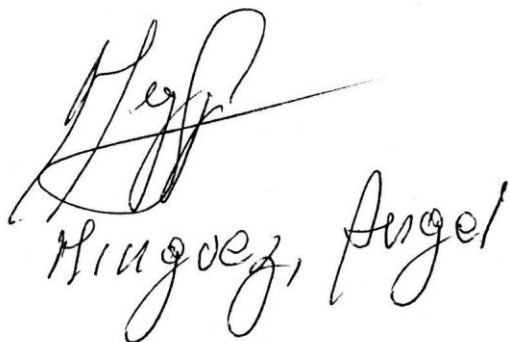 Minguez, Angel